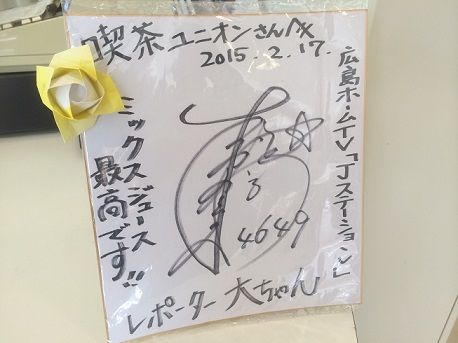 喫茶ユニオンさん江
2015.2.17.
広島ホームTV「Jステーション」
ミックスジュース
最高です!!
4649
レポーター 大ちゃん